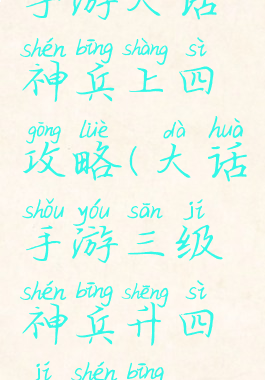 手游大话
shén bīng shàng sì
神兵上四
gōng lüè dà huà
攻略(大话
shǒu yóu sān jí
手游三级
shén bīng shēng sì
神兵升四
jí shén bīng